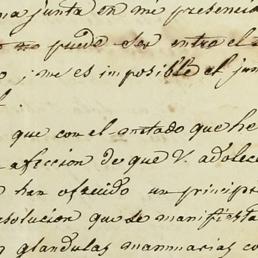 na junta en mi presencia
no puede ser entre el
o, me es imposible el jun
que con el anotado que he
afeccion de que V. adolec
han ofrecido un princip
esolucion que se manifiesta
glandulas mammarias co